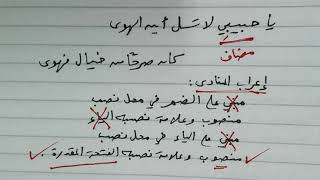 يا حبيبي لا تسل أين الهوى
مضاف
كان صرحًا من خيال فهوى
إعراب المنادى:
مبني على الضم في محل نصب
منصوب وعلامة نصبه الياء
مبني على الياء في محل نصب
منصوب وعلامة نصبه الفتحة المقدرة.